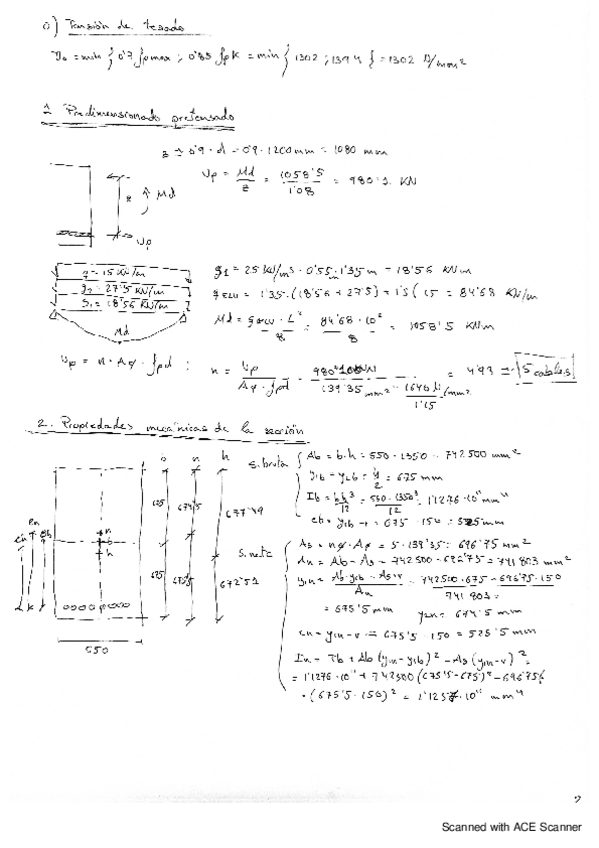 0) Tensión de tesado
σo = min { 0'7 fpmax ; 0'85 fpk = min { 1302 ; 1394 } = 1302 N/mm²
1. Predimensionado pretensado
z ≃ 0'9 · d = 0'9 · 1200mm = 1080 mm
Up = Md / z = 1058'5 / 1'08 = 980'1 KN
z Md
Up
q = 15 KN/m
g2 = 27'5 KN/m
g1 = 18'56 KN/m
Md
g1 = 25 KN/m³ · 0'55 · 1'35 m = 18'56 KN/m
qELU = 1'35 · (18'56 + 27'5) + 1'5 ( 15 = 84'68 KN/m
Md = qELU · L² / 8 = 84'68 · 10² / 8 = 1058'5 KNm
Up = n · Aφ · fpd : n = Up / Aφ · fpd = / 139'35 mm² · 1640 N/mm² / 1'15 = 4'93 ≃ 5 cables
2. Propiedades mecánicas de la sección
b n h
675 674'5 677'49
n
b
h
675 675'5 672'51
550
S. bruta { Ab = b·h = 550 · 1350 = 742500 mm²
y1b = y2b = h/2 = 675 mm
Ib = bh³/12 = 550 · 1350³ / 12 = 1'1276 · 10¹¹ mm⁴
eb = y1b - r = 675 - 150 = 525 mm
S. neta { As = nφ · Aφ = 5 · 139'35 = 696'75 mm²
An = Ab - As = 742500 - 696'75 = 741803 mm²
y1n = Ab·y1b - As·r / An = 742500 · 675 - 696'75 · 150 / 741803 =
= 675'5 mm y2n = 674'5 mm
en = y1n - r = 675'5 - 150 = 525'5 mm
In = Ib + Ab (y1n - y1b)² - As (y1n - r)² =
= 1'1276 · 10¹¹ + 742500 (675'5 - 675)² - 696'75 ·
· (675'5 - 150)² = 1'1257 · 10¹¹ mm⁴
2
Scanned with ACE Scanner